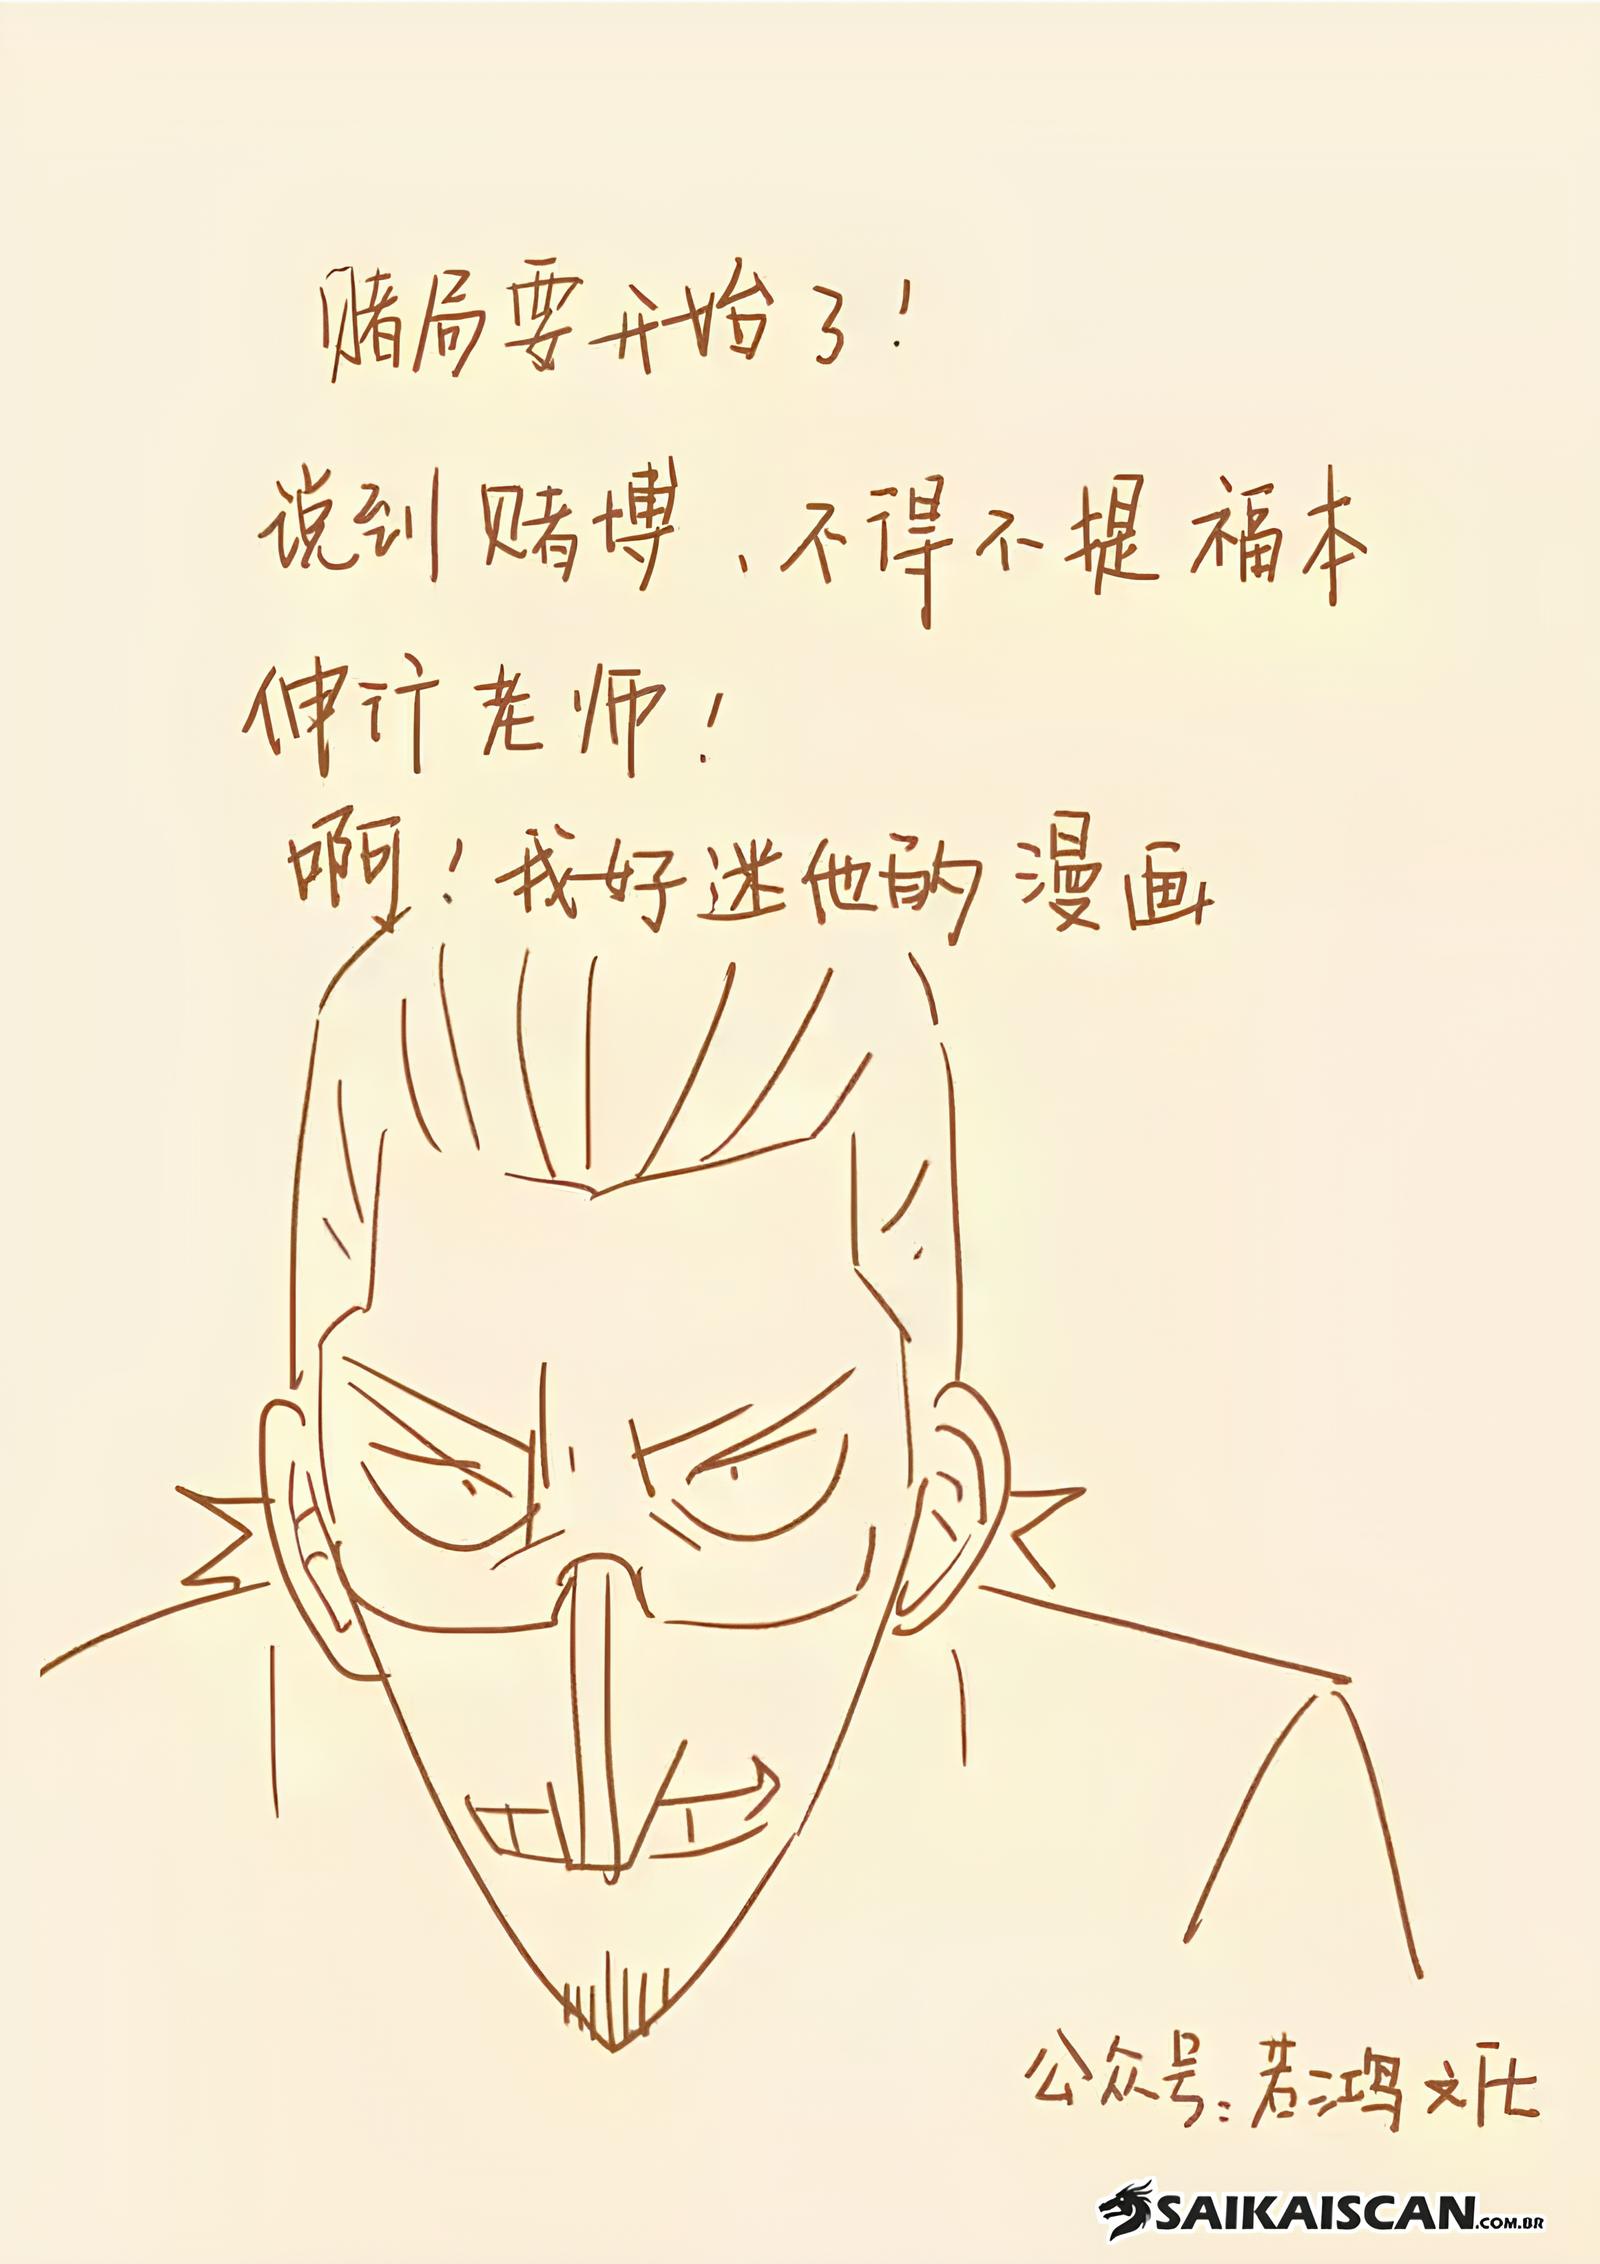 赌局要开始了!
说到赌博、不得不提福本
伸计老师!
啊!我好迷他的漫画
公众号:若鸿文社
SAIKAISCAN.COM.BR